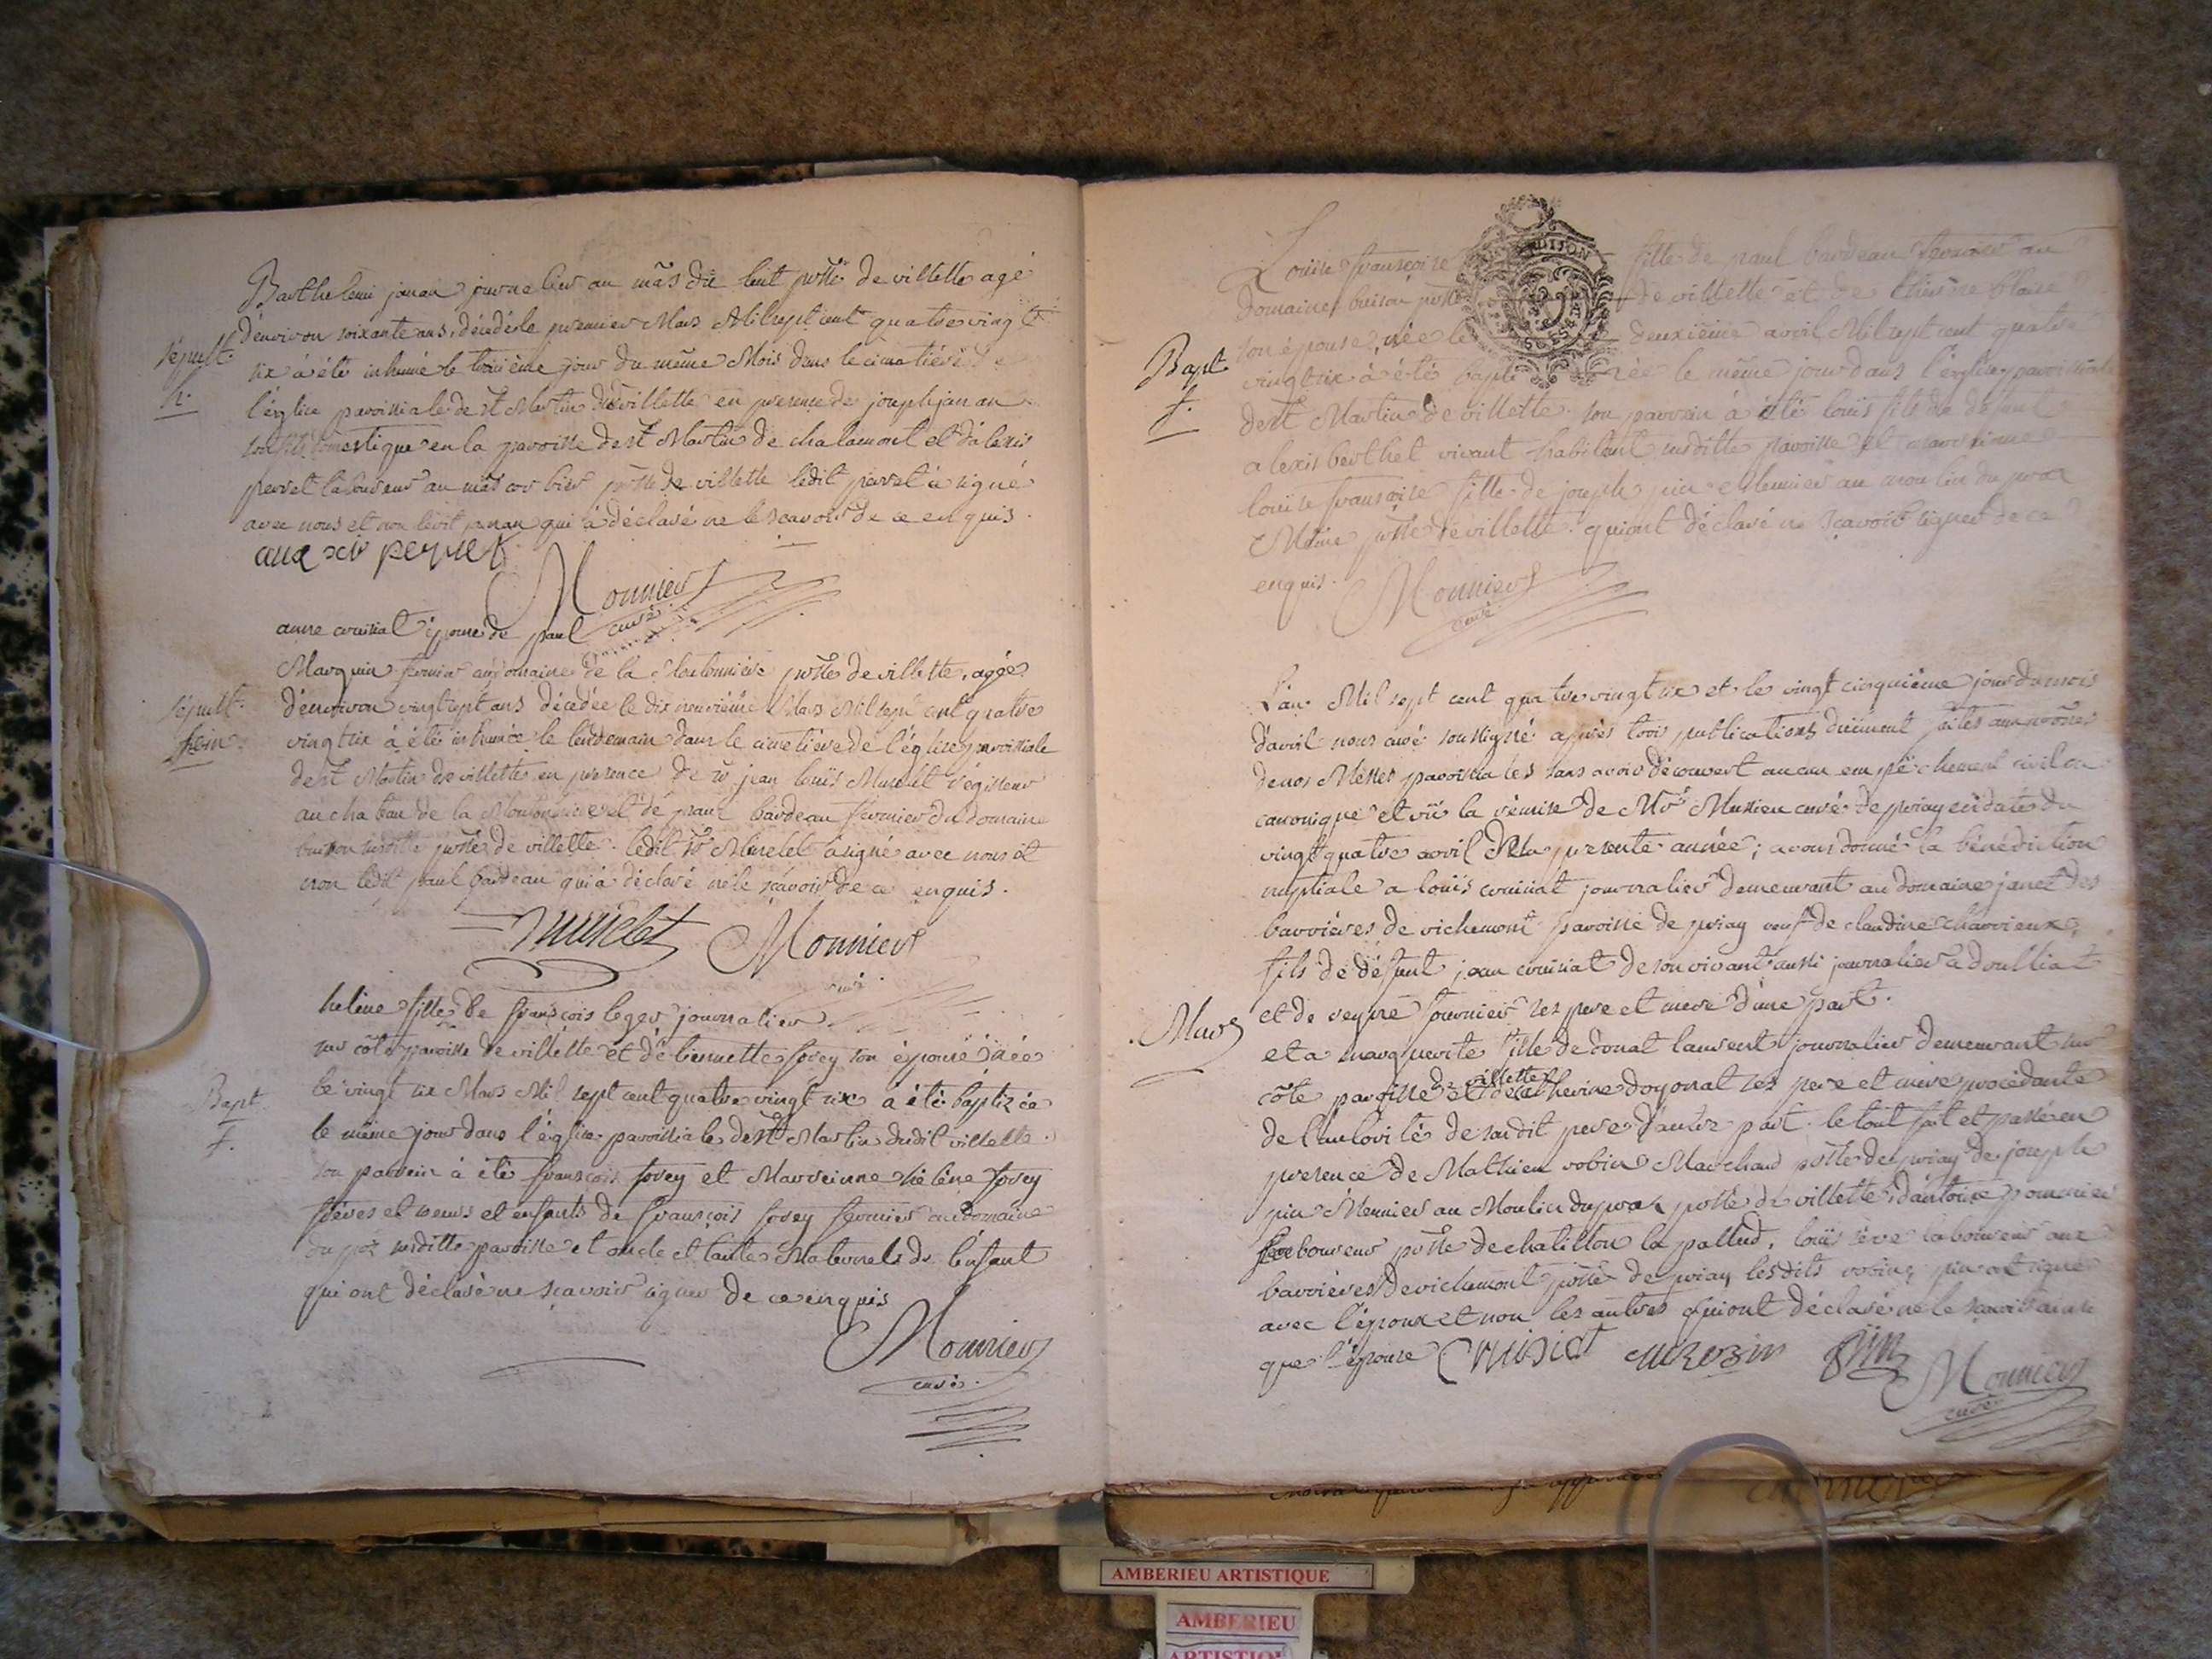 Barthelemi janan journelier au mas du lent psse de villette agé
sépult. d'environ soixante ans, décédé le premier Mars Mil sept cent quatre vingt
h. six à été inhumé le troisième jour du même Mois dans le cimetière de
l'église paroissiale de st Martin de villette en presence de joseph janan
son fils domestique en la paroisse de st Martin de chalamont et d'alexis
perret laboureur au mas corbier psse de villette ledit perret à signé
avec nous et non ledit janan qui à déclaré ne le scavoir de ce enquis.
Monnier
curé
anne cruisiat épouse de paul
Marquin fermier au domaine de la Moutonnière psse de villette, agée
sépult. d'environ vingt sept ans décédée le dix neuvième Mars Mil sept cent quatre
fem. vingt six à été inhumée le lendemain dans le cimetière de l'église paroissiale
de st Martin de villette en presence de sr jean louïs Muselet régisseur
au chateau de la Moutonnière et de paul bardeau fermier du domaine
buison susditte psse de villette. ledit sr Muselet a signé avec nous et
non ledit paul bardeau qui à déclaré ne le scavoir de ce enquis.
Muselet Monnier
curé
heline fille de françois leger journalier
sur côte paroisse de villette et de bennette forey son épouse née
Bapt. le vingt six Mars Mil sept cent quatre vingt six à été baptizée
f. le même jour dans l'église paroissiale de st Martin dudit villette.
son parrein à été françois forey et Marreinne hélène forey
frères et soeurs et enfants de françois forey fermier au domaine
du susditte paroisse et oncle et tante Maternels de l'enfant
qui ont déclaré ne scavoir signer de ce enquis
Monnier
curé.
Louïse françoise fille de paul bardeau fermier au
domaine buison psse de villette et de blaise
son épouse, née le deuxième avril Mil sept cent quatre
Bapt. vingt six à été baptizée le même jour dans l'église paroissiale
f. de st Martin de villette. son parrein à été louïs fils de défunt
alexis berthet vivant habitant susditte paroisse et marreinne
louïse françoise fille de joseph pin meunier au moulin du
Même psse de villette. qui ont déclaré ne scavoir signer de ce
enquis. Monnier
curé
L'an Mil sept cent quatre vingt six et le vingt cinquième jour du mois
d'avril nous curé soussigné après trois publications duëment faites aux prônes
de nos Messes paroissiales sans avoir découvert aucun empêchement civil ou
canonique et vû la rémise de Mr Mussieu curé de priay en date du
vingt quatre avril de la presente année; avons donné la bénédiction
nuptiale a louïs cruisiat journalier demeurant au domaine janet des
barrières de richemont paroisse de priay veuf de claudine charrieux,
fils de défunt jean cruisiat de son vivant aussi journalier a douillat
Mar. et de reyne fournier ses pere et mere d'une part.
et a marguerite fille de donat laurent journalier demeurant sur
côte paroisse de villette et de catherine doyonat ses pere et mere procédante
de l'autorité de sondit pere d'autre part. le tout fait et passé en
presence de Mathieu robin Marchand psse de priay de joseph
pin Meunier au Moulin du psse de villette, d'antoine pommier
laboureur psse de chatillon la pallud, louïs laboureur aux
barrières de richemont psse de priay lesdits robin, pin ont signé
avec l'époux et non les autres qui ont déclaré ne le scavoir ainsi
que l'épouse Cruisiat M Robin Pin Monnier
curé
AMBERIEU ARTISTIQUE
AMBERIEU
ARTISTIQUE